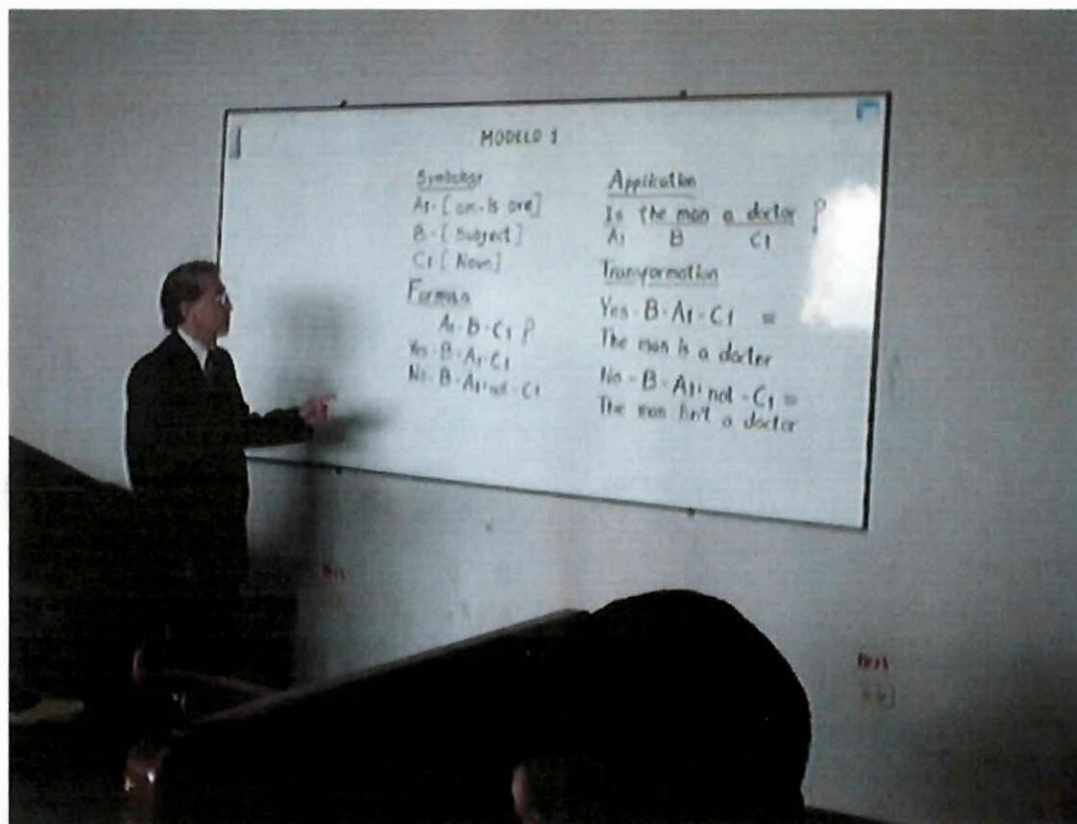 MODELO 1
Symbology
A1 - [am - is are]
B - [Subject]
C1 [Noun]
Formula
A1 - B - C1 ?
Yes - B - A1 - C1
No - B - A1 - not - C1
Application
Is the man a doctor ?
A1 B C1
Transformation
Yes - B - A1 - C1 =
The man is a doctor
No - B - A1 - not - C1 =
The man isn't a doctor